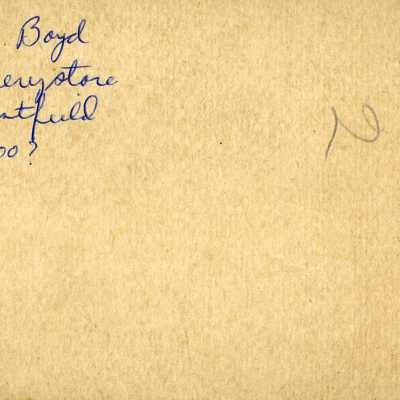 Boyd
erystore
ntfield
00?
N